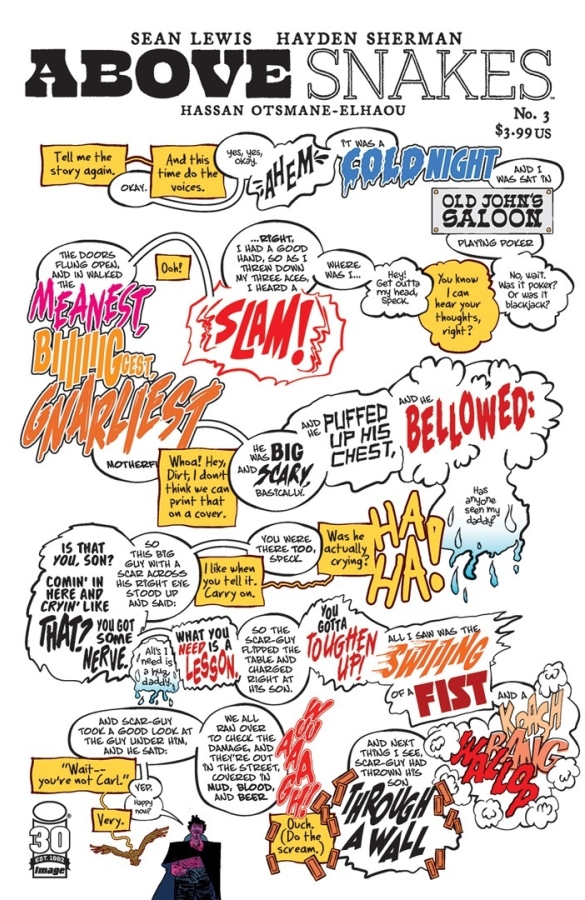 SEAN LEWIS HAYDEN SHERMAN
ABOVE SNAKES
HASSAN OTSMANE-ELHAOU
No. 3
$3.99 US
Tell me the
story again.
OKAY.
And this
time do the
voices.
yes, yes,
okay.
AHEM
IT WAS A
COLD NIGHT
AND I
WAS SAT IN
OLD JOHN'S
SALOON
PLAYING POKER
No, wait.
Was it poker?
Or was it
blackjack?
You know
I can
hear your
thoughts,
right?
Hey!
Get outta
my head,
Speck.
WHERE
WAS I...
...RIGHT,
I HAD A GOOD
HAND, SO AS I
THREW DOWN
MY THREE ACES,
I HEARD A
SLAM!
Ooh!
THE DOORS
FLUNG OPEN,
AND IN WALKED
THE
MEANEST,
BIIIIIIGGEST,
GNARLIEST
MOTHERF
Whoa! Hey,
Dirt, I don't
think we can
print that
on a cover.
HE
WAS BIG
AND SCARY,
BASICALLY.
AND
HE
PUFFED
UP HIS
CHEST,
AND HE
BELLOWED:
Has
anyone
seen my
daddy?
HA
HA!
Was he
actually
crying?
YOU WERE
THERE TOO,
SPECK.
I like when
you tell it.
Carry on.
SO
THIS BIG
GUY WITH A
SCAR ACROSS
HIS RIGHT EYE
STOOD UP
AND SAID:
IS THAT
YOU, SON?
COMIN' IN
HERE AND
CRYIN' LIKE
THAT? YOU GOT
SOME
NERVE.
All's I
need is
a hug,
daddy.
WHAT YOU
NEED IS A
LESSON.
SO THE
SCAR-GUY
FLIPPED THE
TABLE AND
CHARGED
RIGHT AT
HIS SON.
YOU
GOTTA
TOUGHEN
UP!
ALL I SAW WAS THE
SWIIIIING
OF A FIST
AND A
KRASH
BAANG
WALLOP
AND NEXT
THING I SEE,
SCAR-GUY HAD
THROWN HIS
SON
THROUGH
A WALL
WOO
AAAA
AGH!!
Ouch.
(Do the
scream.)
WE ALL
RAN OVER
TO CHECK THE
DAMAGE, AND
THEY'RE OUT
IN THE STREET,
COVERED IN
MUD, BLOOD,
AND BEER.
AND SCAR-GUY
TOOK A GOOD LOOK AT
THE GUY UNDER HIM,
AND HE SAID:
"Wait--
you're not Carl."
YEP.
Happy
now?
Very.
30
EST. 1992
image